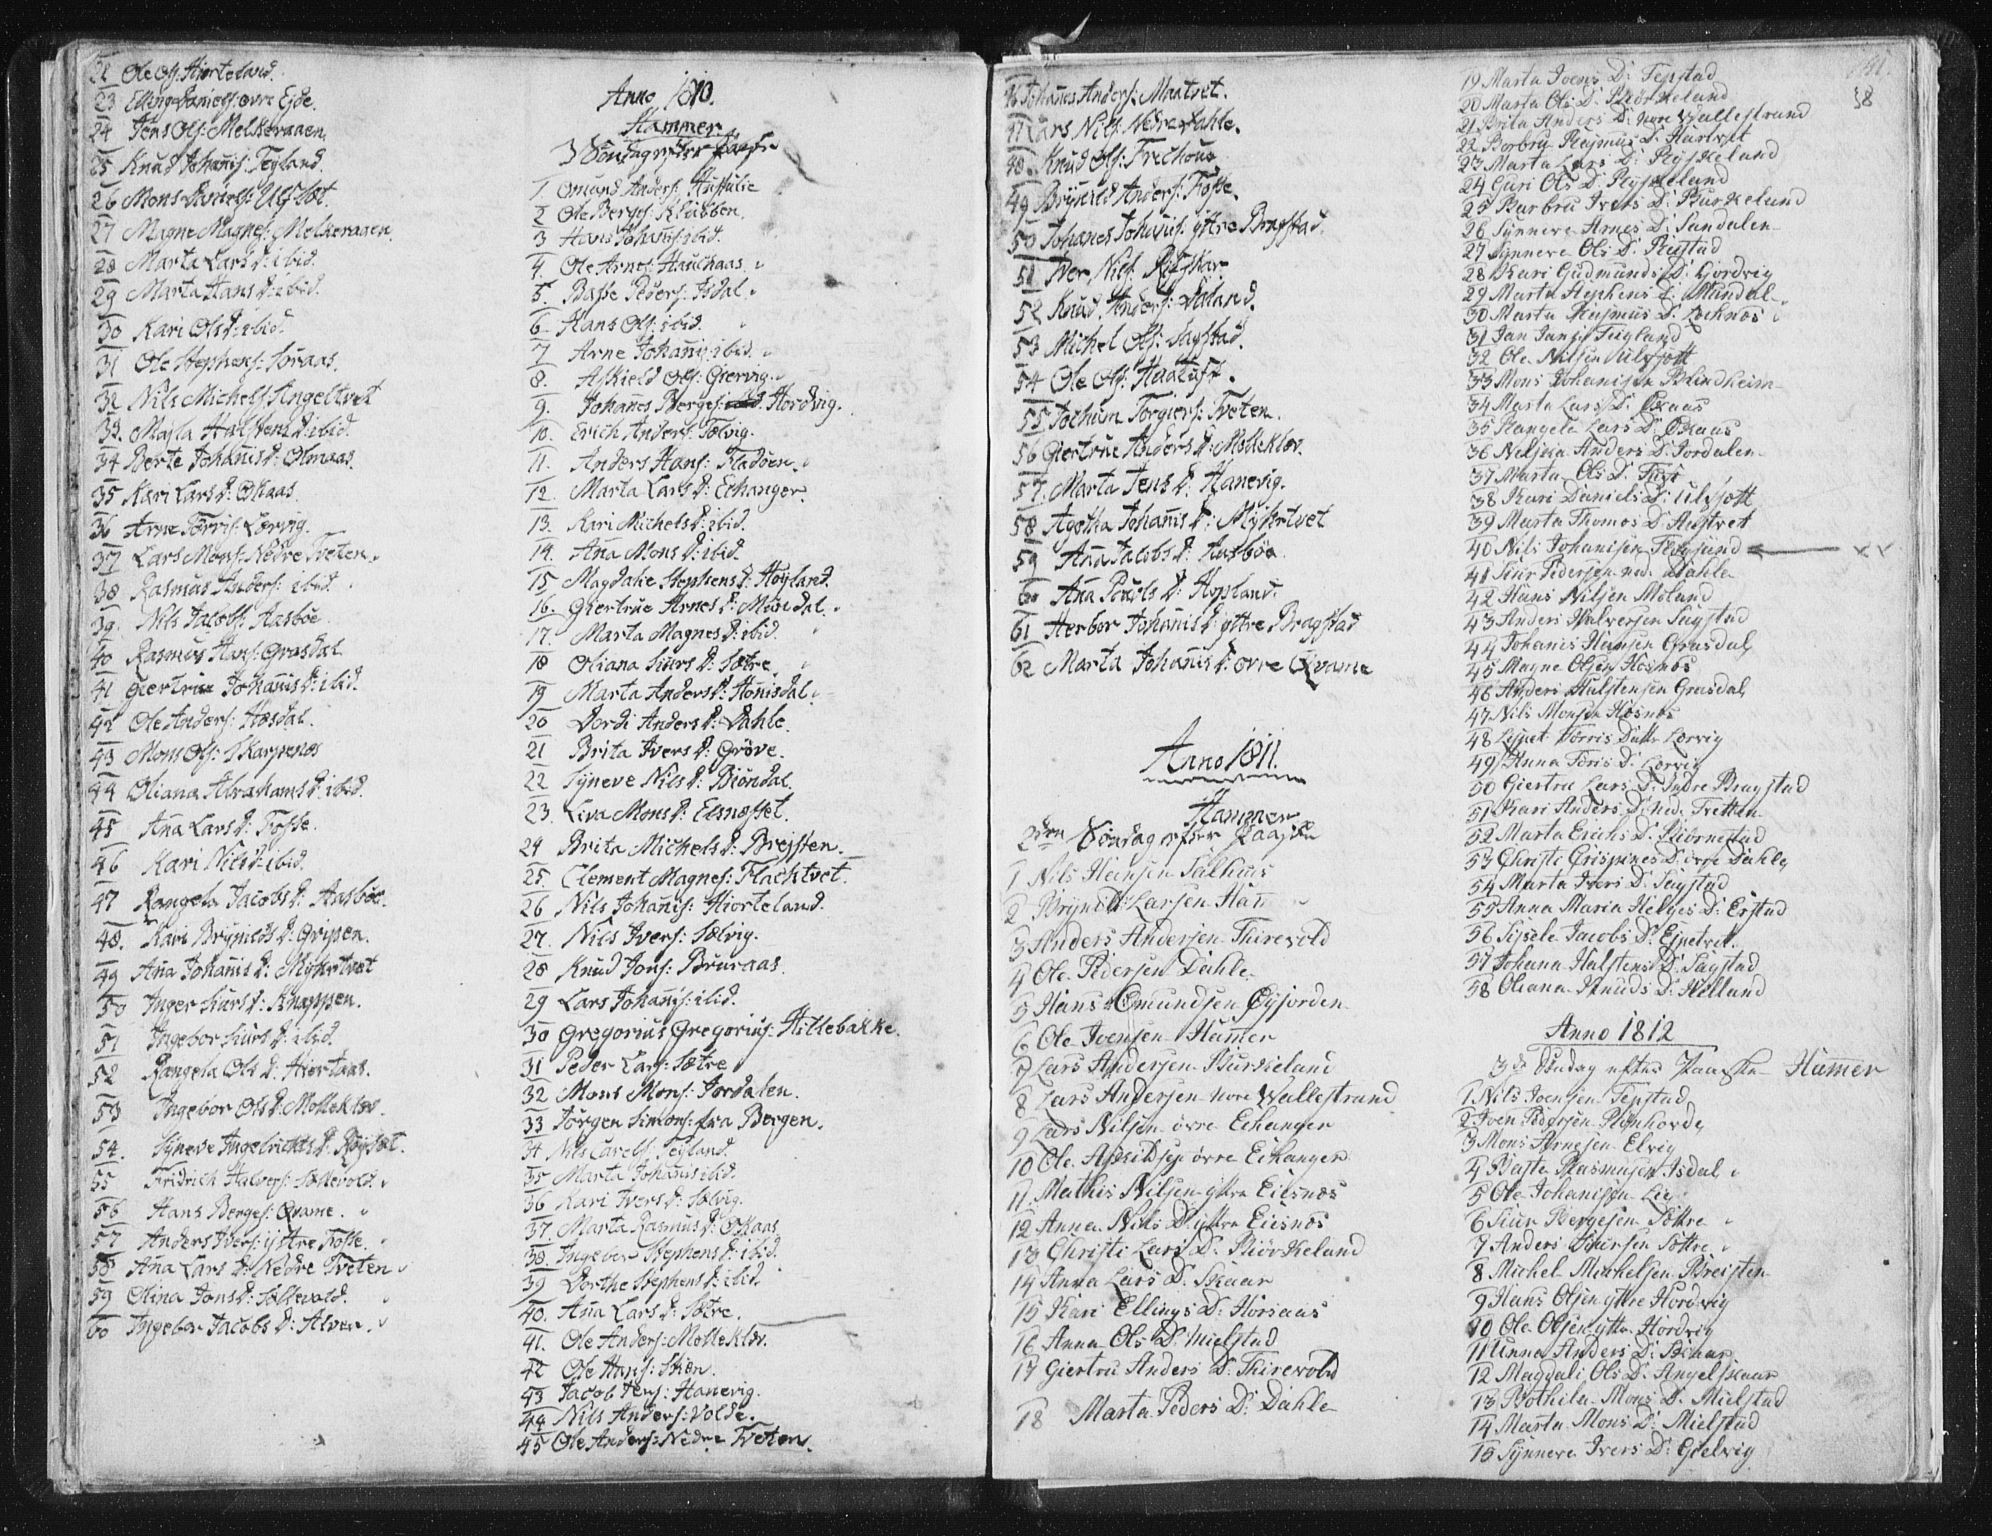 22 Ole Ols: Hiorteland.
23 Elling Daniels: øvre Ejde.
24 Jens Ols: Melkeraaen
25 Knud Johanis: Teyland.
26 Mons
27 Magne Magnes: Melkeraaen.
28 Marta Lars D: ibid.
29 Marta Hans D: ibid.
30 Kari Ols D: ibid.
31 Ole Stephens: Soraas.
32 Nils Michels: Angeltvet
33. Majla Halstens D: ibid.
34 Berte Johanis D: Olmaas.
35 Kari Lars D: Okaas
36 Arne Torris: Lervig.
37 Lars Mons: Nedre Tveten.
38 Rasmus Anders: ibid.
39. Nils Jacobs: Aasbøe
40 Rasmus Hans: Grasdal
41 Giertrue Johanis D: ibid.
42 Ole Anders: Hæsdal.
43 Mons Ols: Skarpenes
44 Oliana Abrahams D: ibid.
45 Aña Lars D: Fosse.
46 Kari Nils D: ibid.
47 Rangela Jacobs D: Aasbøe.
48. Kari Brynilds D: Gripen.
49 Aña Johanis D: Myhrtvet
50 Inger Siurs D: Knappen.
51 Ingebor Siurs D: ibid.
52 Rangela Ols D: Hiortaas.
53 Ingebor Ols D: Molleklev.
54. Syneve Ingebricts D: Røysæt.
55 Fridrich Halvers: Sællevold.
56 Hans Berges: Qvame.
57 Anders Ivers: ystre Fosse.
58 Aña Lars D: Nedre Tveten
59 Olina Jons D: Sollevold.
60 Ingebor Jacobs D: Alver.
Anno 1810.
Hammer.
3 Søndag efter Paaske
1 Omund Anders:
2 Ole Berges: Klubben.
3 Hans Johanis: ibid.
4. Ole Arnes: Hauchaas.
5. Basse Peders: Isdal.
6. Hans Ols: ibid.
7 Arne Johanis: ibid.
8. Askield Ols: Giervig.
9. Johanes Berges: Hordvig.
10. Erich Anders: Sælvig.
11. Anders Hans: Fladøen.
12. Marta Lars D: Echanger.
13. Kari Michels D: ibid.
14. Aña Mons D: ibid.
15 Magdalie Stephens D: Høyland.
16. Giertrue Arnes D: Mundal.
17. Marta Magnes D: ibid.
18 Oliana Siurs D: Sætre
19 Marta Anders D: Honisdal.
20 Dordi Anders D: Dahle.
21 Brita Ivers D: Grøve.
22 Syneve Nils D: Biøndal.
23. Liva Mons D: Eisnesset.
24 Brita Michels D: Brejsten.
25. Clement Magnes: Flachtvet.
26 Nils Johanis: Hiorteland.
27. Nils Ivers: Sælvig.
28 Knud Jons: Bruraas.
29 Lars Johanis: ibid.
30 Gregorius Gregorius: Hillebakke.
31 Peder Lars: Sætre
32 Mons Mons: Jordalen.
33 Jørgen Simons: fra Bergen.
34 Nils Carels: Teyland.
35 Marta Johanis ibid.
36 Kari Ivers D: Sælvig.
37. Marta Rasmus D: Okaas
38 Ingebor Stephens D: ibid.
39 Dorthe Stephens D: ibid.
40. Aña Lars D: Sætre.
41. Ole Anders: Molleklev.
42 Ole Hans: Skiæn.
43 Jacob Jens: Hanevig.
44 Nils Anders: Volde.
45 Ole Anders: Nedre Tveten.
46 Johanes Anders: Maatvet.
47 Lars Nils: Nedre Dahle.
48. Knud Ols:
49 Brynild Anders: Fosse.
50 Johanes Johanis: yttre Bragstad.
51 Iver Nils:
52 Knud Anders: Daland.
53 Michel Ols: Sagstad.
54 Ole Ols:
55 Jochum Torgiers: Tveten.
56 Giertrue Anders D: Molleklev.
57. Marta Jens D: Hanevig.
58 Agotha Johanis D: Myhrtvet
59 Aña Jacobs D: Aasbøe
60 Aña Pouls D: Hopland.
61 Herbor Johanis D: yttre Bragstad
62 Marta Johanis D: øvre Qvame
Anno 1811.
Hammer
2den Søndag efter Paaske
1 Nils Hansen Salhuus
2 Brynild Larsen
3 Anders Andersen Thirevold
4 Ole Pedersen Dahle
5 Hans Omundsen Øyjorden
6 Ole Joensen Hamer
7 Lars Andersen Burkeland
8 Lars Andersen nore Wallestrand
9 Lars Nilsen øvre Echanger
10 Ole øvre Eikanger
11 Mathis Nilsen yttre Eiesnæs
12 Anna Nils D: yttre Eiesnæs
13 Christi Lars D: Biørkeland
14 Anna Lars D: Skaar
15 Kari Ellings D: Horsaas
16 Anna Ols D: Mielstad
17 Giertru Anders D: Thirevold
18 Marta Peders D: Dahle
141.
58
19 Marta Joens D: Tepstad
20 Marta Ols D: Biørkeland
21 Brita Anders D: nore Wallestrand
22 Barbru Rasmus D: Hartvet
23 Marta Lars D: Røskeland
24 Guri Ols D: Røskeland
25 Barbru Ivers D: Burkeland
26 Synnere Arnes D: Sandalen
27 Synnere Ols D: Ragstad
28 Kari Gudmunds D: Hordvig
29 Marta Stephens D: Mundal
30 Marta Rasmus D: Leknæs
31 Jan Jansen Teigland
32 Ole Nilsen Ulvsøtt
33 Mons Johanisen Blindheim
34 Marta Lars D: Okaas
35 Rangela Lars D: Okaas
36 Anders D: Jordalen
37 Marta Ols D:
38 Kari Daniels D: Ulvsøtt
39 Marta Thomas D:
40 Nils Johanisen
41 Siur Pedersen ned. Dahle
42 Hans Nilsen Moland
43 Anders Halversen Sagstad
44 Johanis Hansen Grasdal
45 Magne Olsen Hosnøs
46 Anders Halstensen Grasdal
47 Nils Monsen Hosnøs
48 Torris Datt Lervig
49 Anna Toris D: Lervig
50 Giertru Lars D: Indre Bragstad
51 Kari Anders D: ned. Tvetten
52 Marta Erichs D: Biørnestad
53 Christi Crispines D: øvre Dahle
54 Marta Ivers D: Sagstad
55 Anna Maria Helges D: Erstad
56 Sissele Jacobs D: Ejpetvet
57 Johana Halstens D: Sagstad
58 Oliana Knuds D: Helland
Anno 1812
3de Søndag efter Paaske Hamer
1 Nils Joensen Tepstad
2 Joen Pedersen
3 Mons Arnesen Elvig
4 Baste Rasmusen Isdal
5 Ole Johanisen Lie
6 Siur Bergesen Sættre
7 Anders Siursen Sættre
8 Michel Michelsen Breisten
9 Hans Olsen yttre Hordvig
10 Ole Olsen yttre Hordvig
11 Anna Anders D: Skaar
12 Magdali Ols D: Angelskaar
13 Bothila Mons D: Mielstad
14 Marta Mons D: Mielstad
15 Synnere Ivers D: Gielvig